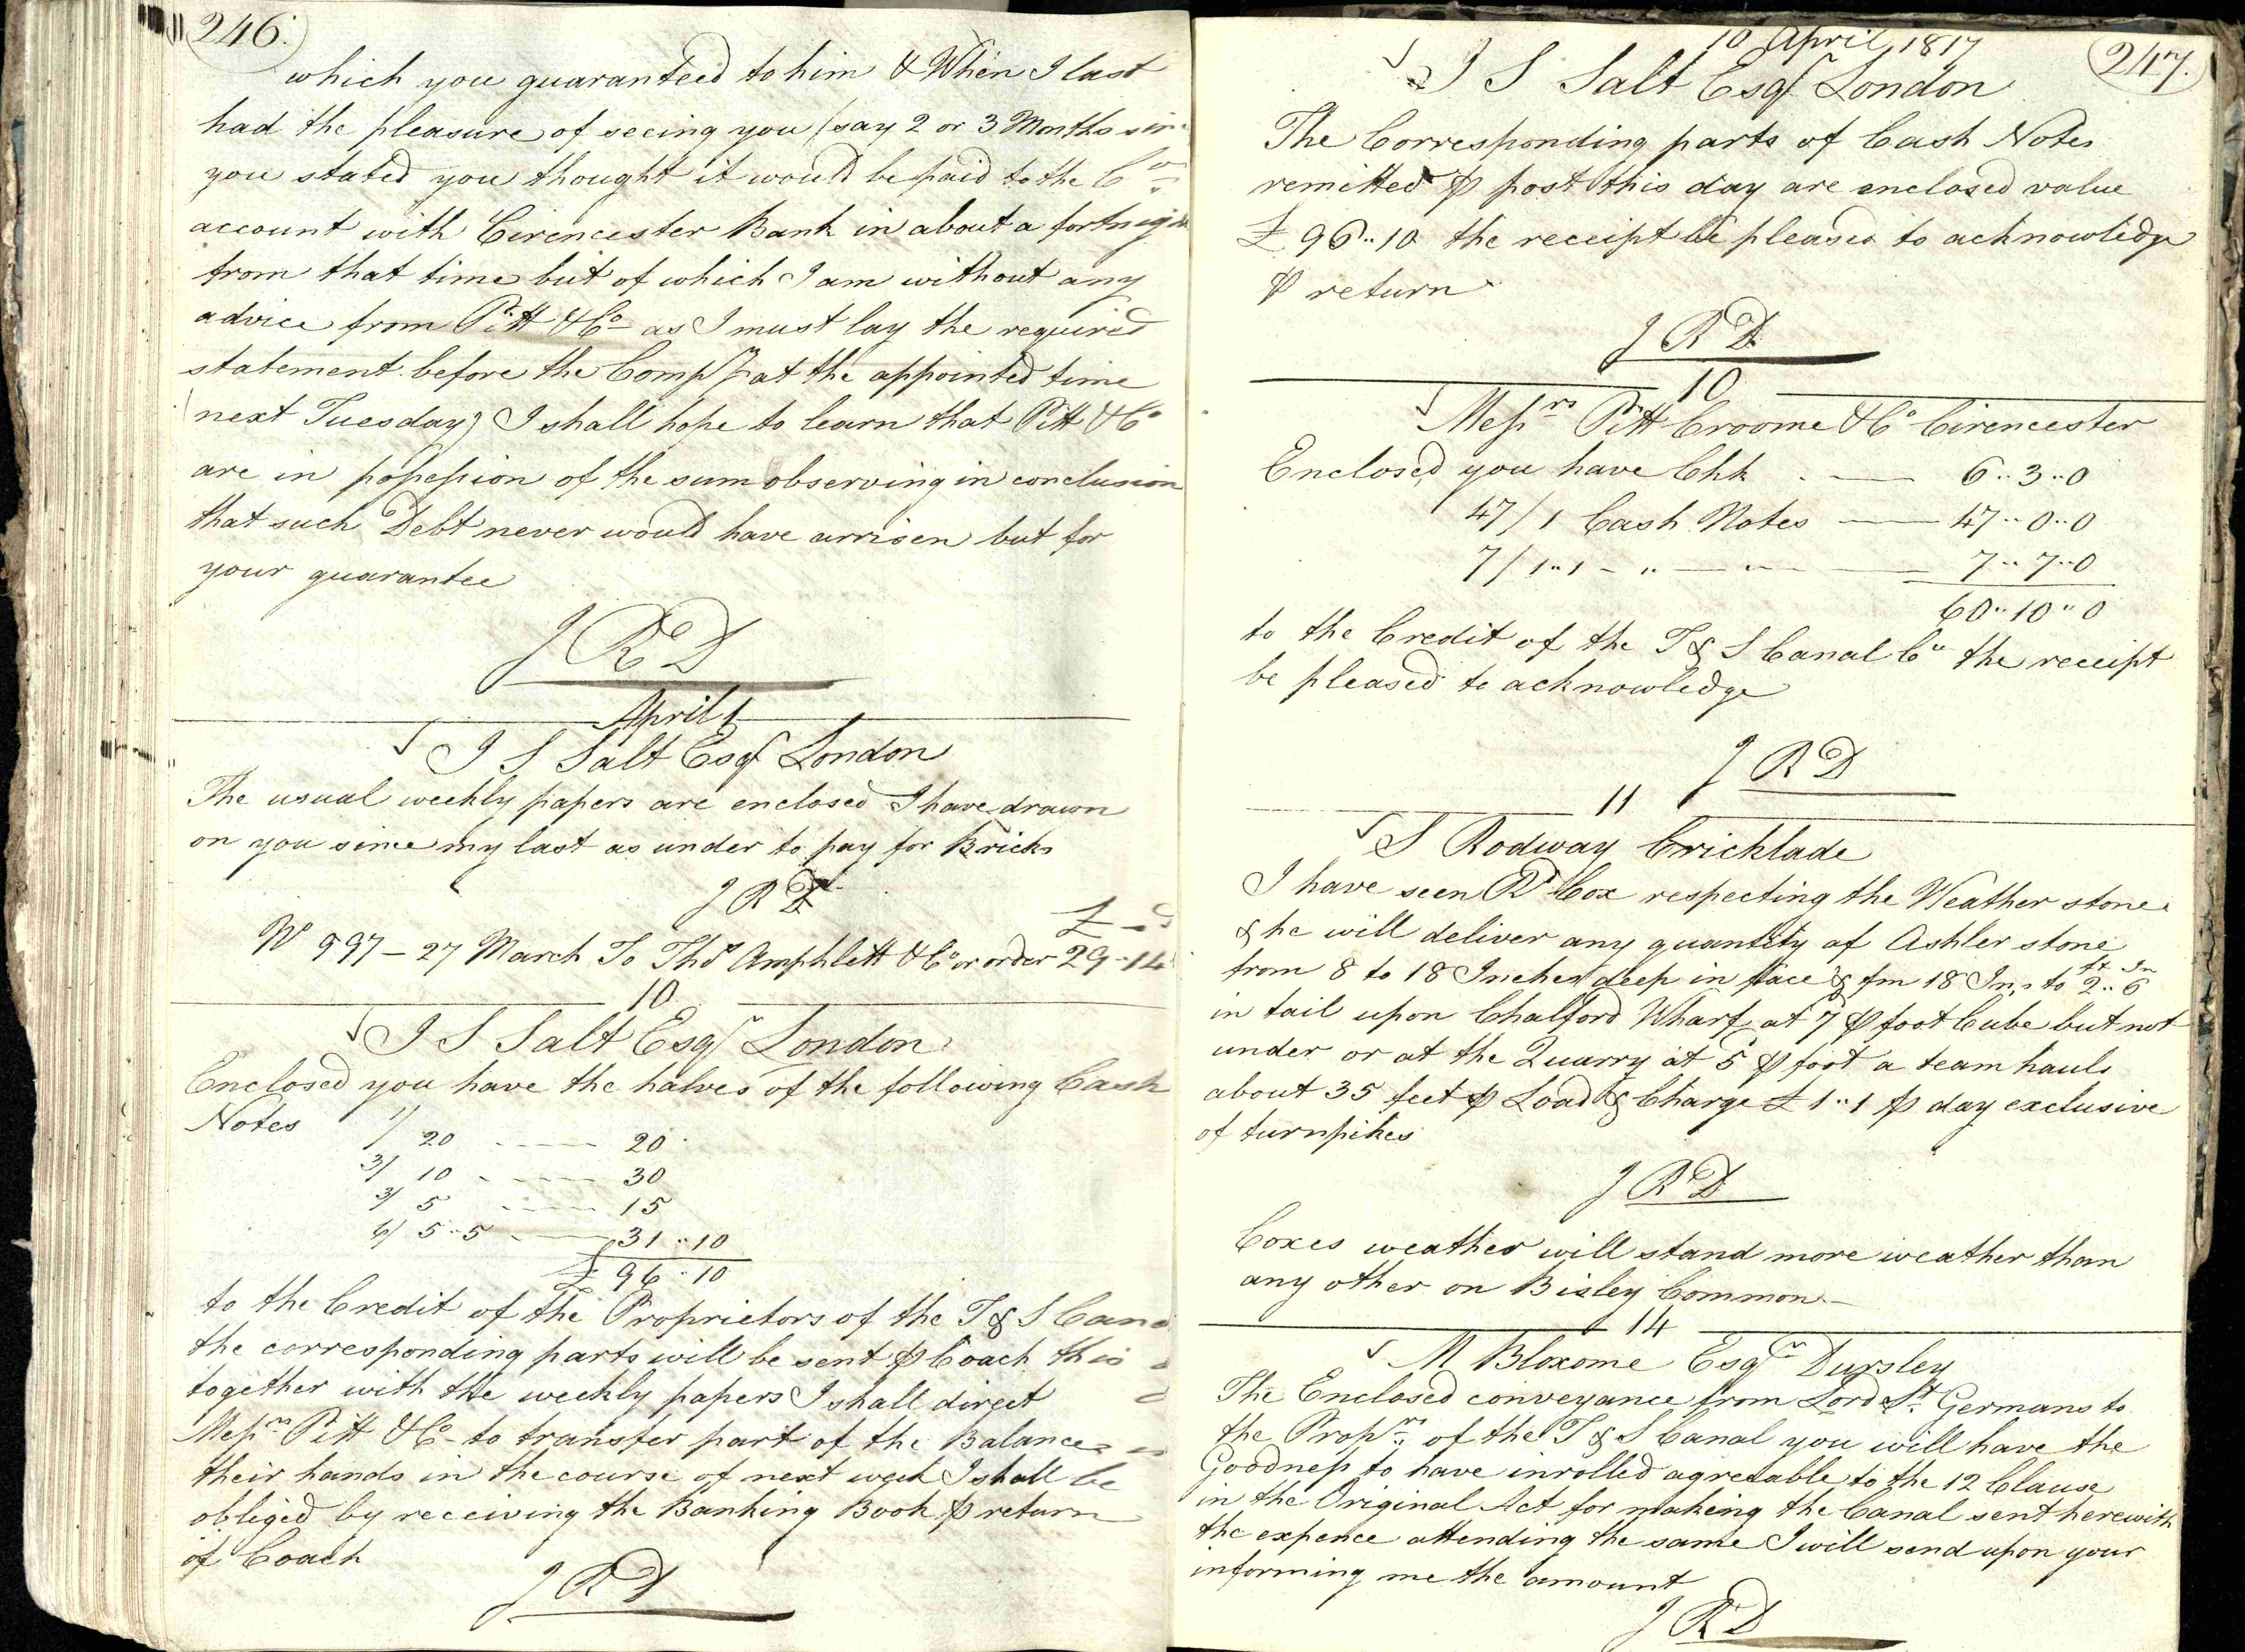 246.
which you guaranteed to him & When I last
had the pleasure of seeing you (say 2 or 3 Months
you stated you thought it would be paid to the Co
account with Cirencester Bank in about a
from that time but of which I am without any
advice from Pitt & Co as I must lay the required
statement before the Compy at the appointed time
(next Tuesday) I shall hope to learn that Pitt & Co
are in possession of the sum observing in conclusion
that such Debt never would have arrisen but for
your guarantee
J R D
April 1
I S Salt Esqr London
The usual weekly papers are enclosed I have drawn
on you since my last as under to pay for Bricks
J R D
£ s d
No 997 - 27 March To Thos Amphlett & Co or order 29-14
10
I S Salt Esqr London
Enclosed you have the halves of the following Cash
Notes 1/ 20 ---- 20
3/ 10 ---- 30
3/ 5 ---- 15
6/ 5..5 ---- 31..10
£ 96..10
to the Credit of the Proprietors of the T & S
the corresponding parts will be sent ⅌ Coach this
together with the weekly papers I shall direct
Messrs Pitt & Co to transfer part of the Balance
their hands in the course of next week I shall be
obliged by receiving the Banking Book ⅌ return
of Coach
J R D
10 April 1817
247.
I S Salt Esqr London
The Corresponding parts of Cash Notes
remitted ⅌ post this day are enclosed value
£ 96..10 the receipt be pleased to acknowledge
⅌ return
J R D
10
Messrs Pitt Croome & Co Cirencester
Enclosed you have Chk . — 6..3..0
47/1 Cash Notes — 47..0..0
7/1..1 - " — " — 7..7..0
60..10..0
to the Credit of the T & S Canal Co the receipt
be pleased to acknowledge
J R D
11
S Rodway Cricklade
I have seen Rd Cox respecting the Weather stone
& he will deliver any quantity of Ashler stone
from 8 to 18 Inches deep in face & fm 18 Ins to 2ft..6In
in tail upon Chalford Wharf at 7d ⅌ foot Cube but not
under or at the Quarry at 5d ⅌ foot a team hauls
about 35 feet ⅌ Load & Charge £ 1..1 ⅌ day exclusive
of turnpikes
J R D
Coxes weather will stand more weather than
any other on Bisley Common
14
M Bloxome Esqr Dursley
The Enclosed conveyance from Lord St. Germans to
the Proprs of the T & S Canal you will have the
Goodness to have inrolled agreeable to the 12 Clause
in the Original Act for making the Canal sent herewith
the expence attending the same I will send upon your
informing me the amount
J R D